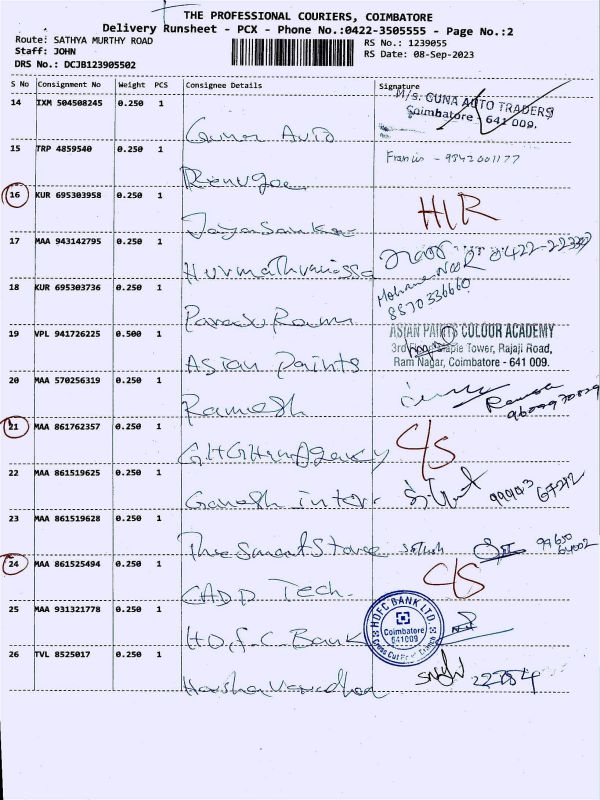 THE PROFESSIONAL COURIERS, COIMBATORE
Delivery Runsheet - PCX - Phone No.:0422-3505555 - Page No.:2
Route: SATHYA MURTHY ROAD
RS No.: 1239055
Staff: JOHN
RS Date: 08-Sep-2023
DRS No.: DCJB123905502
S No Consignment No Weight PCS Consignee Details Signature
14 IXM 504508245 0.250 1
M/s. GUNA AUTO TRADERS
Coimbatore - 641 009.
Guna Auto
15 TRP 4859540 0.250 1
Francis - 9842001177
Renuga
16 KUR 695303958 0.250 1
H/R
Jaya Sankar
17 MAA 943142795 0.250 1
Hurmathunissa
18 KUR 695303736 0.250 1
8870336660
Parasu Rama
19 VPL 941726225 0.500 1
ASIAN PAINTS COLOUR ACADEMY
3rd Floor, Maple Tower, Rajaji Road,
Ram Nagar, Coimbatore - 641 009.
Asian Paints
20 MAA 570256319 0.250 1
Ramesh
Ramesh
21 MAA 861762357 0.250 1
C/S
Agency
22 MAA 861519625 0.250 1
Ganesh inter.
23 MAA 861519628 0.250 1
The Smart Store
Sathish
24 MAA 861525494 0.250 1
C/S
CADD Tech.
25 MAA 931321778 0.250 1
HDFC BANK LTD.
Coimbatore
641009
Cross Cut Road Branch
H.D.F.C Bank
26 TVL 8525017 0.250 1
22784
Harshavardhan